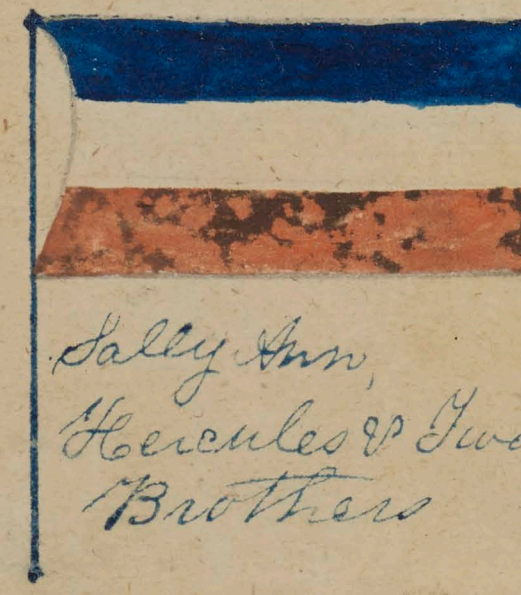 Sally Ann,
Hercules & Two
Brothers